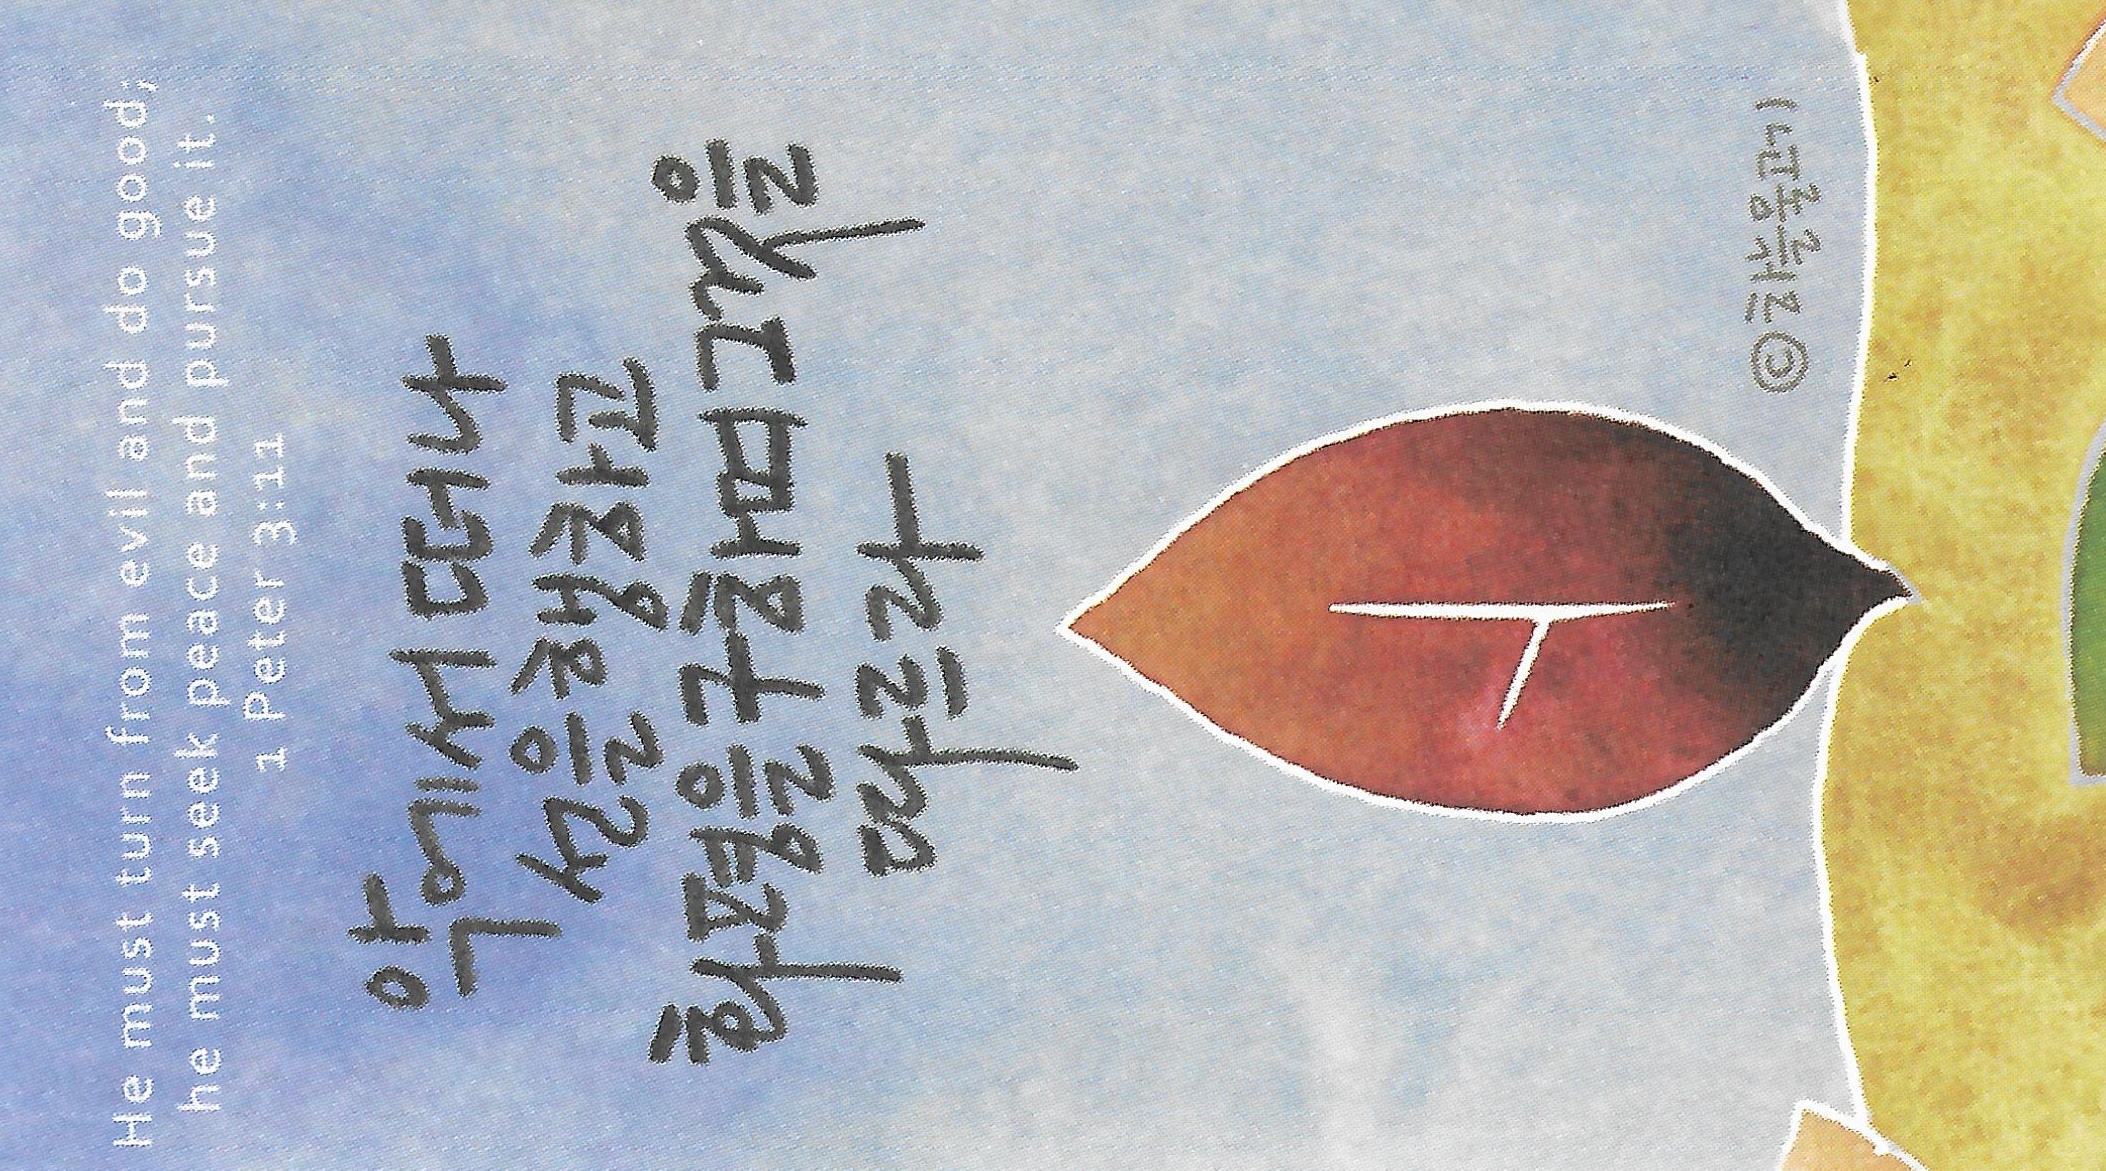 He must turn from evil and do good;
he must seek peace and pursue it.
1 Peter 3:11
악에서 떠나
선을 행하고
화평을 구하며 그것을
따르라
©하늘물고기